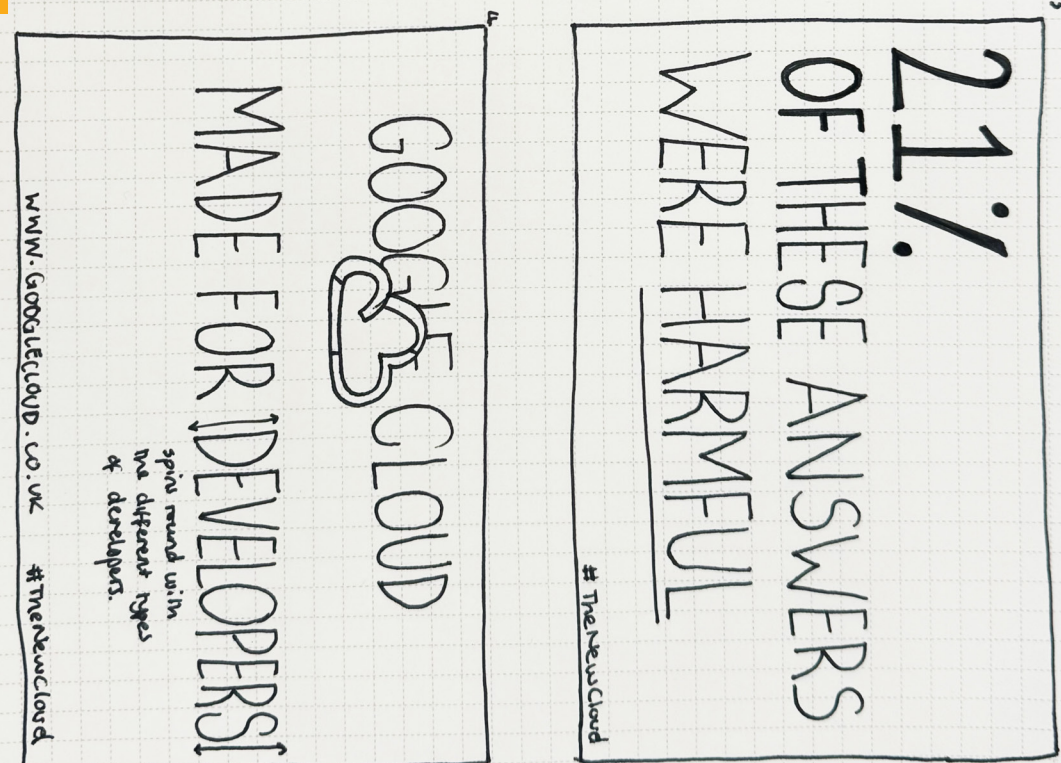 21%
OF THESE ANSWERS
WERE HARMFUL
# TheNewCloud
4
GOOGLE CLOUD
MADE FOR DEVELOPERS
spins round with
the different types
of developers.
WWW.GOOGLECLOUD.CO.UK #TheNewCloud